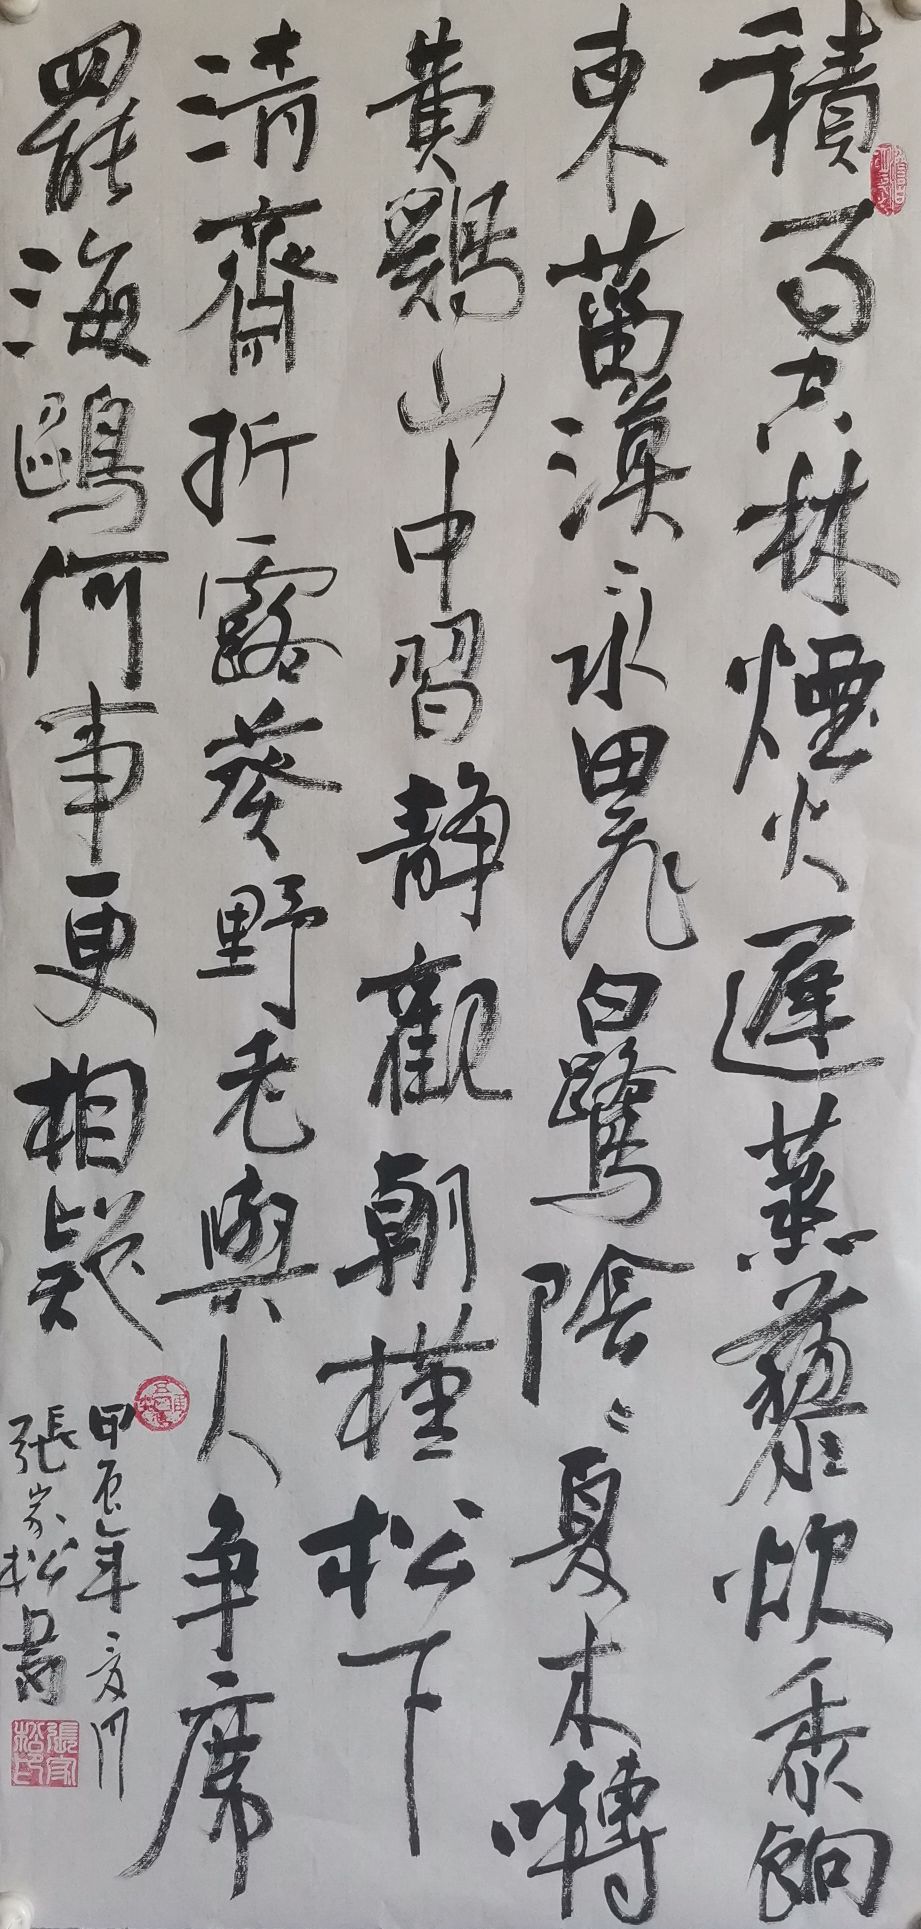 積雨空林煙火遲蒸藜炊黍餉
東菑漠〻水田飛白鷺陰〻夏木囀
黃鸝山中習静觀朝槿松下
清齋折露葵野老與人争席
罷海鷗何事更相疑
甲辰年之夏月
張家松書
張家松印